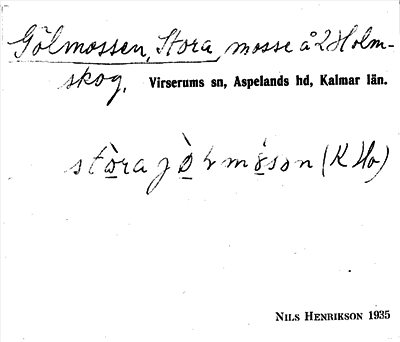 Gölmossen, Stora, mosse å 2 Holm-
skog. Virserums sn, Aspelands hd, Kalmar län.
stòra jö̀ɫmósən (K Ho)
NILS HENRIKSON 1935